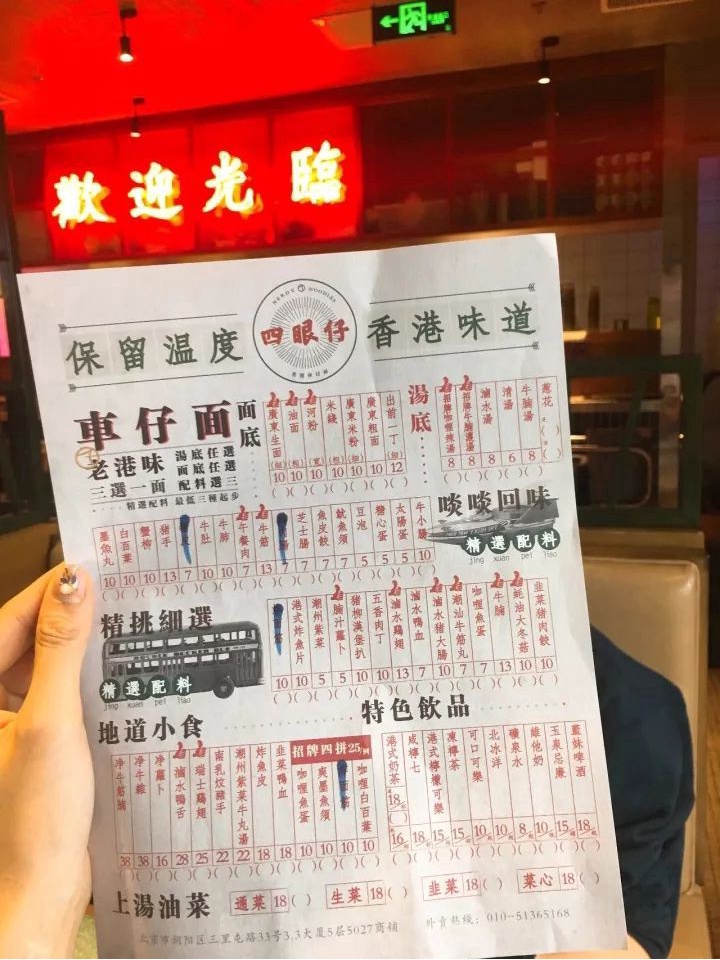 歡迎光臨
NERDY NOODLES
保留温度
四眼仔
香港味道
車仔面
老港味
湯底任選
面底任選
三選一面 配料選三
精選配料 最低三種起步
面底
廣東生面 (細) 10 ( )
油面 (粗) 10 ( )
河粉 (寬) 10 ( )
米綫 (粗) 10 ( )
廣東米粉 (細) 10 ( )
廣東粗面 (粗) 10 ( )
出前一丁 (細) 12 ( )
湯底
招牌咖喱辣湯 8 ( )
招牌牛腩濃湯 8 ( )
滷水湯 8 ( )
清湯 6 ( )
牛腩湯 8 ( )
葱花 ( )
啖啖回味
精選配料
jing xuan pei liao
墨魚丸 10 ( )
白百葉 10 ( )
蟹柳 10 ( )
豬手 13 ( )
7 ( )
牛肚 10 ( )
牛肺 10 ( )
午餐肉 7 ( )
牛筋 13 ( )
7 ( )
芝士腸 7 ( )
魚皮餃 7 ( )
魷魚須 7 ( )
豆泡 5 ( )
糖心蛋 5 ( )
太陽蛋 5 ( )
牛小腸 10 ( )
精挑細選
精選配料
jing xuan pei liao
10 ( )
港式炸魚片 10 ( )
潮州紫菜 5 ( )
腩汁蘿卜 5 ( )
豬柳漢堡扒 10 ( )
五香肉丁 10 ( )
滷水鷄翅 13 ( )
滷水鴨血 7 ( )
滷水豬大腸 10 ( )
潮汕牛筋丸 7 ( )
咖喱魚蛋 7 ( )
牛腩 13 ( )
蚝油大冬菇 10 ( )
韭菜豬肉餃 10 ( )
地道小食
净牛筋腩 38 ( )
净牛雜 38 ( )
净蘿卜 16 ( )
滷水鴨舌 28 ( )
瑞士鷄翅 25 ( )
南乳炆豬手 22 ( )
潮州紫菜牛丸湯 22 ( )
炸魚皮 18 ( )
韭菜鴨血 18 ( )
招牌四拼25/例
咖喱魚蛋 10 ( )
爽墨魚須 10 ( )
10 ( )
咖喱白百葉 10 ( )
特色飲品
港式奶茶 18 16 ( )
咸檸七 18 ( )
港式檸檬可樂 15 ( )
凍檸茶 15 ( )
可口可樂 10 ( )
北冰洋 10 ( )
礦泉水 8 ( )
維他奶 10 ( )
玉泉忌廉 15 ( )
藍妹啤酒 18 ( )
上湯油菜
通菜 18 ( )
生菜 18 ( )
韭菜 18 ( )
菜心 18 ( )
北京市朝陽區三里屯路33号3.3大厦5层5027商铺
外賣热线：010-51365168